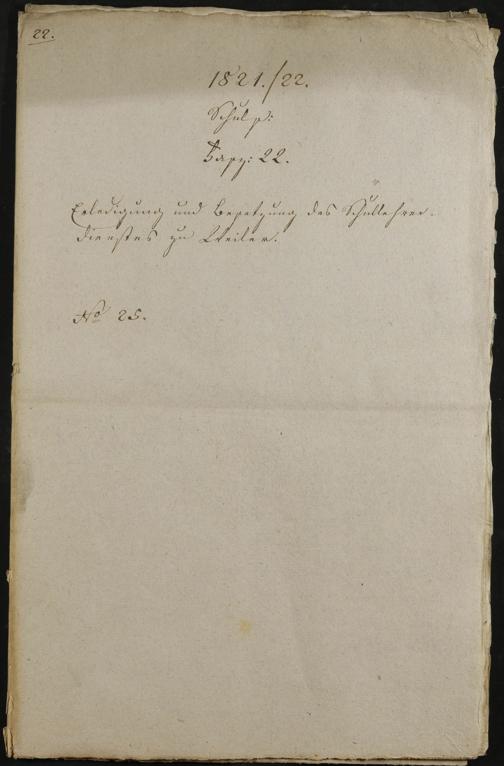 22.
1821./22.
Schul p:
22.
Erledigung und Besetzung des Schullehrer-
dienstes zu Weiler.
No 25.